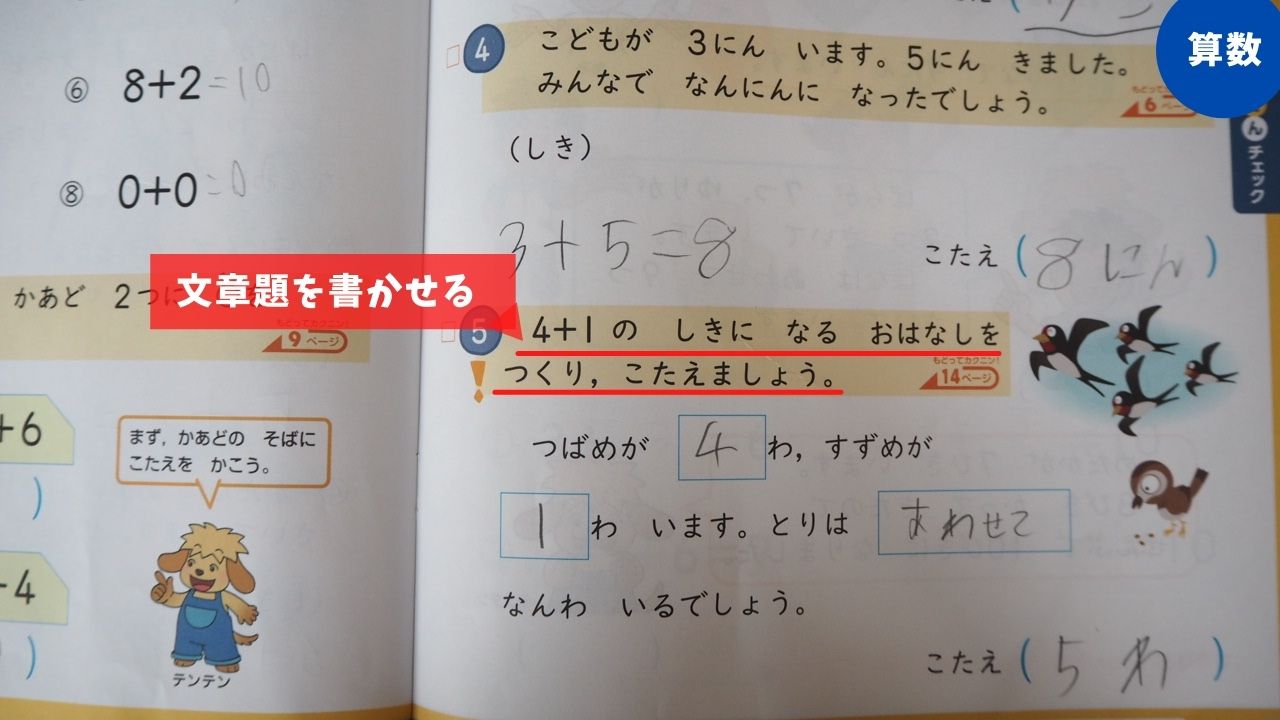 算数
⑥ 8+2=10
⑧ 0+0=0
かあど 2つ
もどってカクニン!
9ページ
+6
)
-4
)
まず,かあどの そばに
こたえを かこう。
テンテン
文章題を書かせる
4 こどもが 3にん います。5にん きました。
みんなで なんにんに なったでしょう。
6ページ
(しき)
3+5=8
こたえ(8にん)
5 4+1の しきに なる おはなしを
つくり,こたえましょう。
もどってカクニン!
14ページ
つばめが 4わ,すずめが
1わ います。とりは あわせて
なんわ いるでしょう。
こたえ(5わ)
んチェック